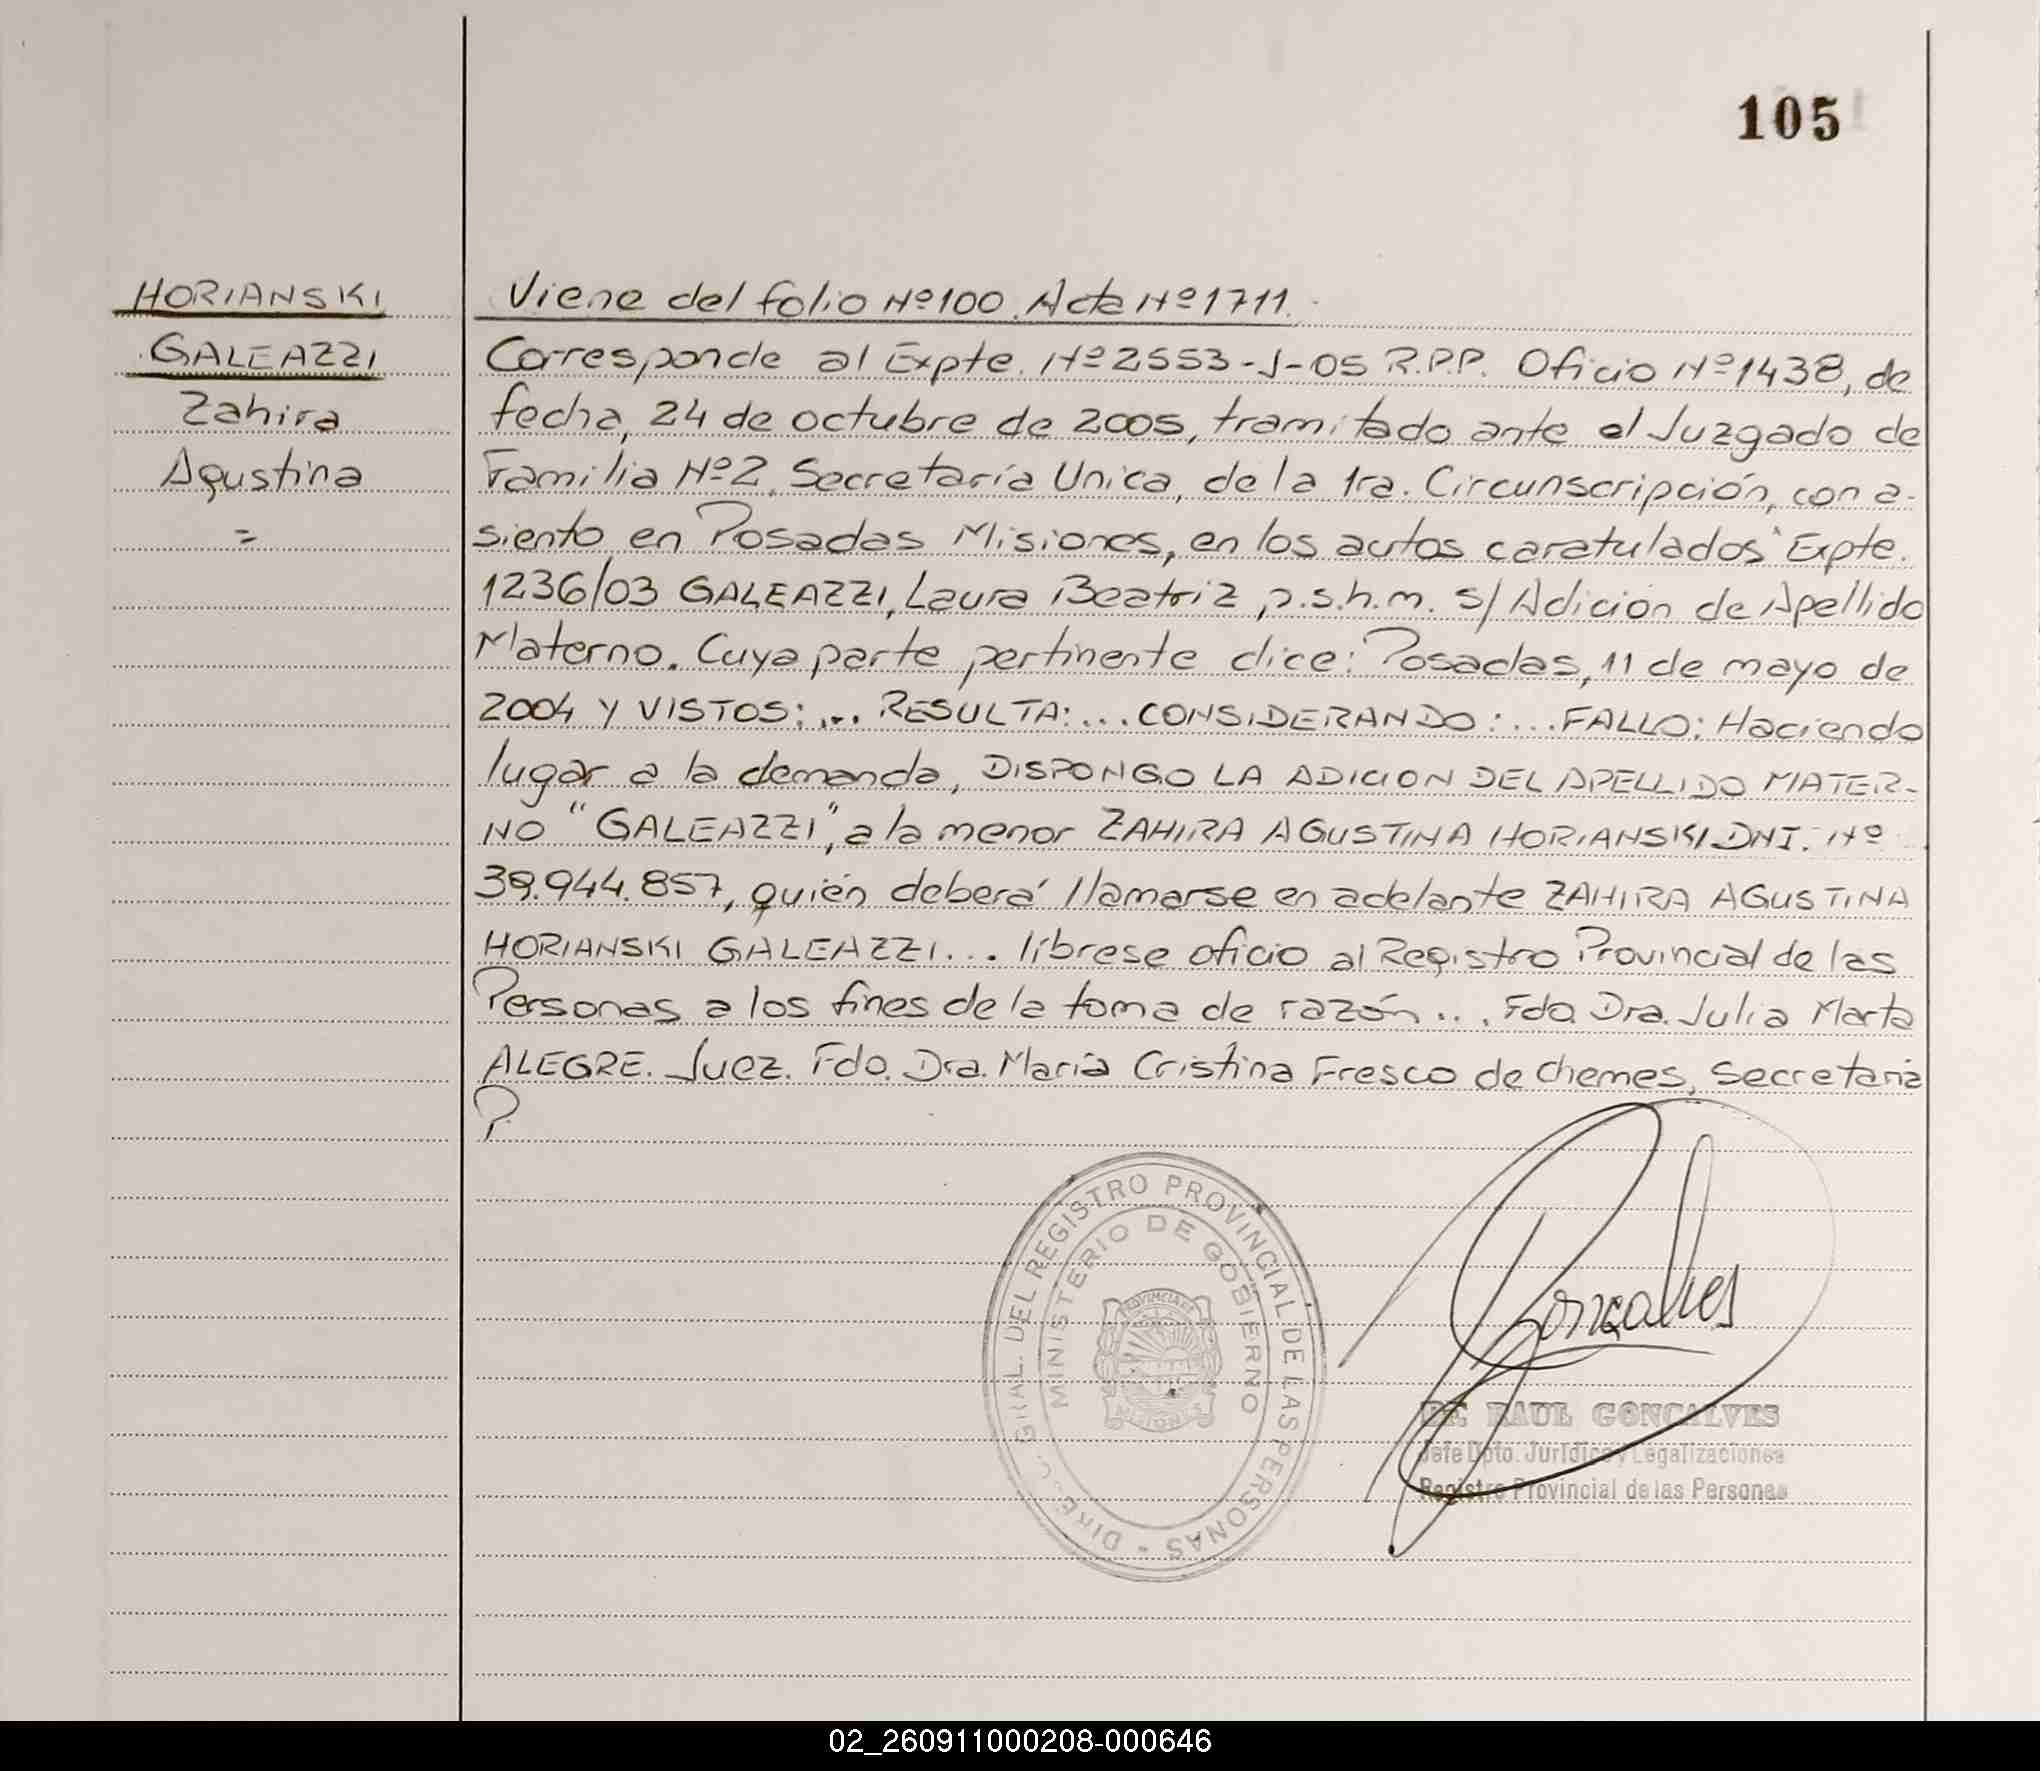 105
HORIANSKI
GALEAZZI
Zahira
Agustina
=
Viene del folio Nº 100. Acta Nº 1711.
Corresponde al Expte. Nº 2553-J-05 R.P.P. Oficio Nº 1438, de
fecha, 24 de octubre de 2005, tramitado ante el Juzgado de
Familia Nº 2, Secretaría Unica, de la 1ra. Circunscripción, con a-
siento en Posadas Misiones, en los autos caratulados "Expte.
1236/03 GALEAZZI, Laura Beatriz, p.s.h.m. s/ Adición de Apellido
Materno. Cuya parte pertinente dice: Posadas, 11 de mayo de
2004 Y VISTOS:... RESULTA:... CONSIDERANDO:... FALLO: Haciendo
lugar a la demanda, DISPONGO LA ADICION DEL APELLIDO MATER-
NO "GALEAZZI", a la menor ZAHIRA AGUSTINA HORIANSKI DNI. Nº
39.944.857, quién deberá llamarse en adelante ZAHIRA AGUSTINA
HORIANSKI GALEAZZI... líbrese oficio al Registro Provincial de las
Personas a los fines de la toma de razón... Fdo. Dra. Julia Marta
ALEGRE. Juez. Fdo. Dra. María Cristina Fresco de Chemes, Secretaria
P.
DIREC. GRAL. DEL REGISTRO PROVINCIAL DE LAS PERSONAS -
MINISTERIO DE GOBIERNO
PROVINCIA DE
MISIONES
Gonçalves
Dr. RAUL GONCALVES
Jefe Dpto. Jurídico y Legalizaciones
Registro Provincial de las Personas
02_260911000208-000646